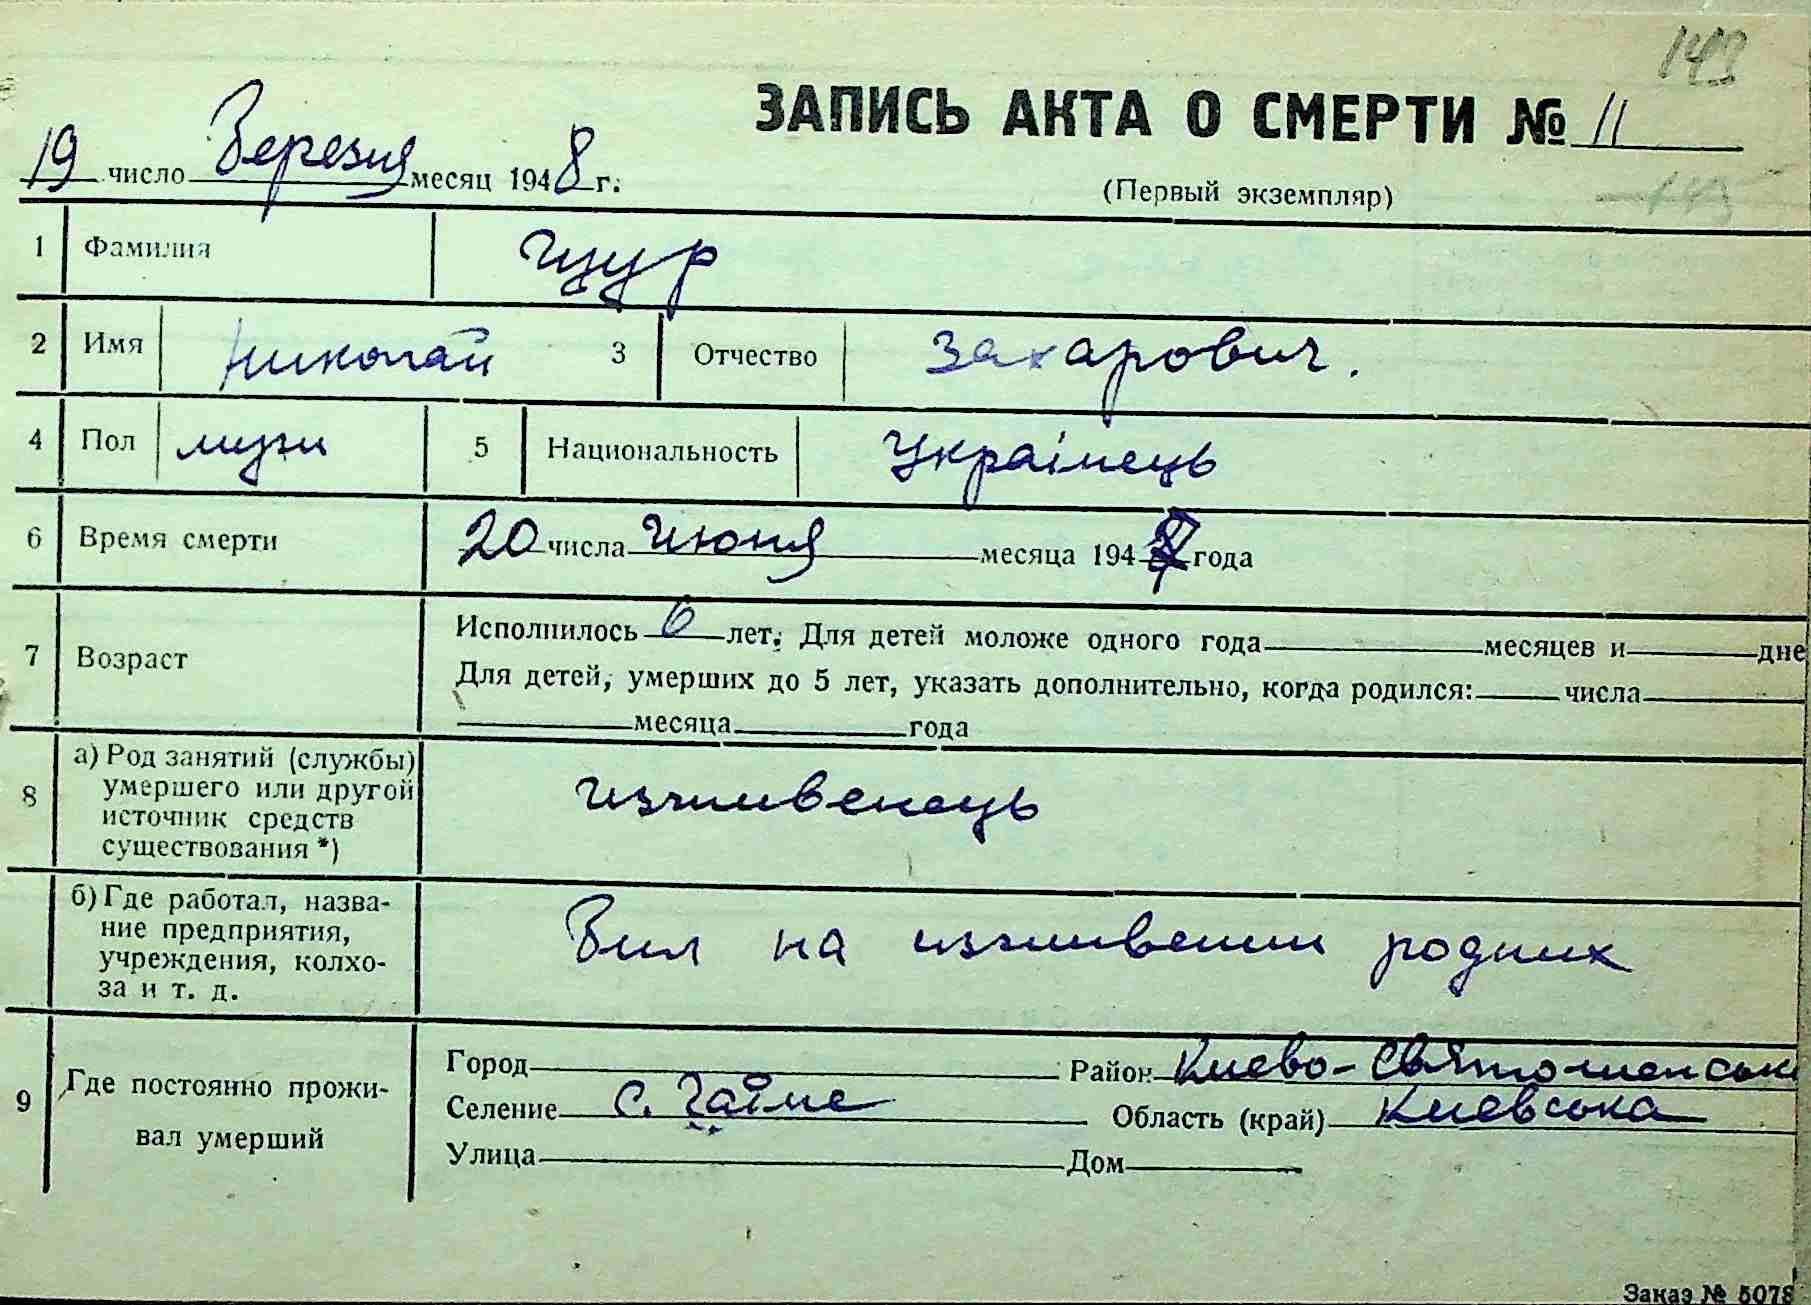 149
ЗАПИСЬ АКТА О СМЕРТИ № 11
19 число Березня месяц 1948 г.
(Первый экземпляр)
149
1 Фамилия Щур
2 Имя Николай 3 Отчество Захарович.
4 Пол муж 5 Национальность Українець
6 Время смерти 20 числа Июня месяца 194 года
7 Возраст Исполнилось 6 лет. Для детей моложе одного года месяцев и дне
Для детей, умерших до 5 лет, указать дополнительно, когда родился: числа
месяца года
8 а) Род занятий (службы)
умершего или другой
источник средств
существования *)
изживенець
б) Где работал, назва-
ние предприятия,
учреждения, колхо-
за и т. д.
Бил на изживении родних
9 Где постоянно прожи-
вал умерший
Город Район Киево-Святошенськ
Селение с. Гатне Область (край) Киевська
Улица Дом
Заказ № 5078